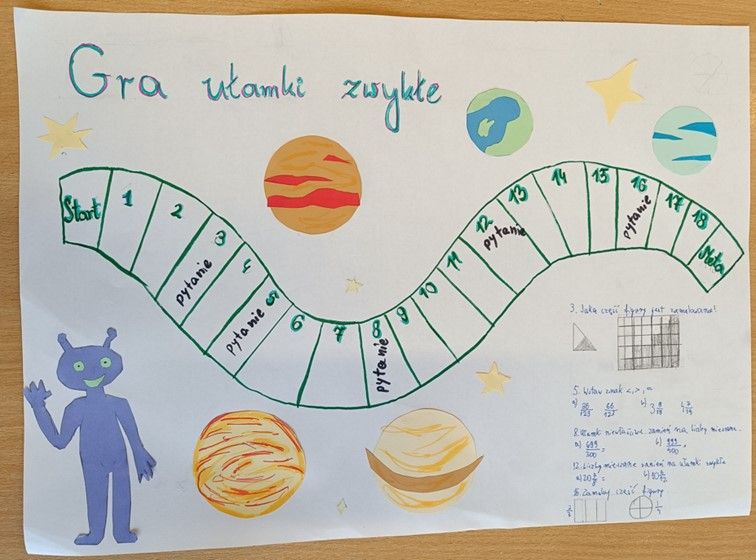 Gra ułamki zwykłe
Start
1
2
3
pytanie
4
5
pytanie
6
7
8
pytanie
9
10
11
12
pytanie
13
14
15
16
pytanie
17
18
Meta
3. Jaka część figury jest zamalowana?
5. Wstaw znak <, >, =
a)
b)
8. Ułamki niewłaściwe zamień na liczby mieszane.
a) 699/300 =
b)
12. Liczby mieszane zamień na ułamki zwykłe
a)
b)
16. Zamaluj część figury